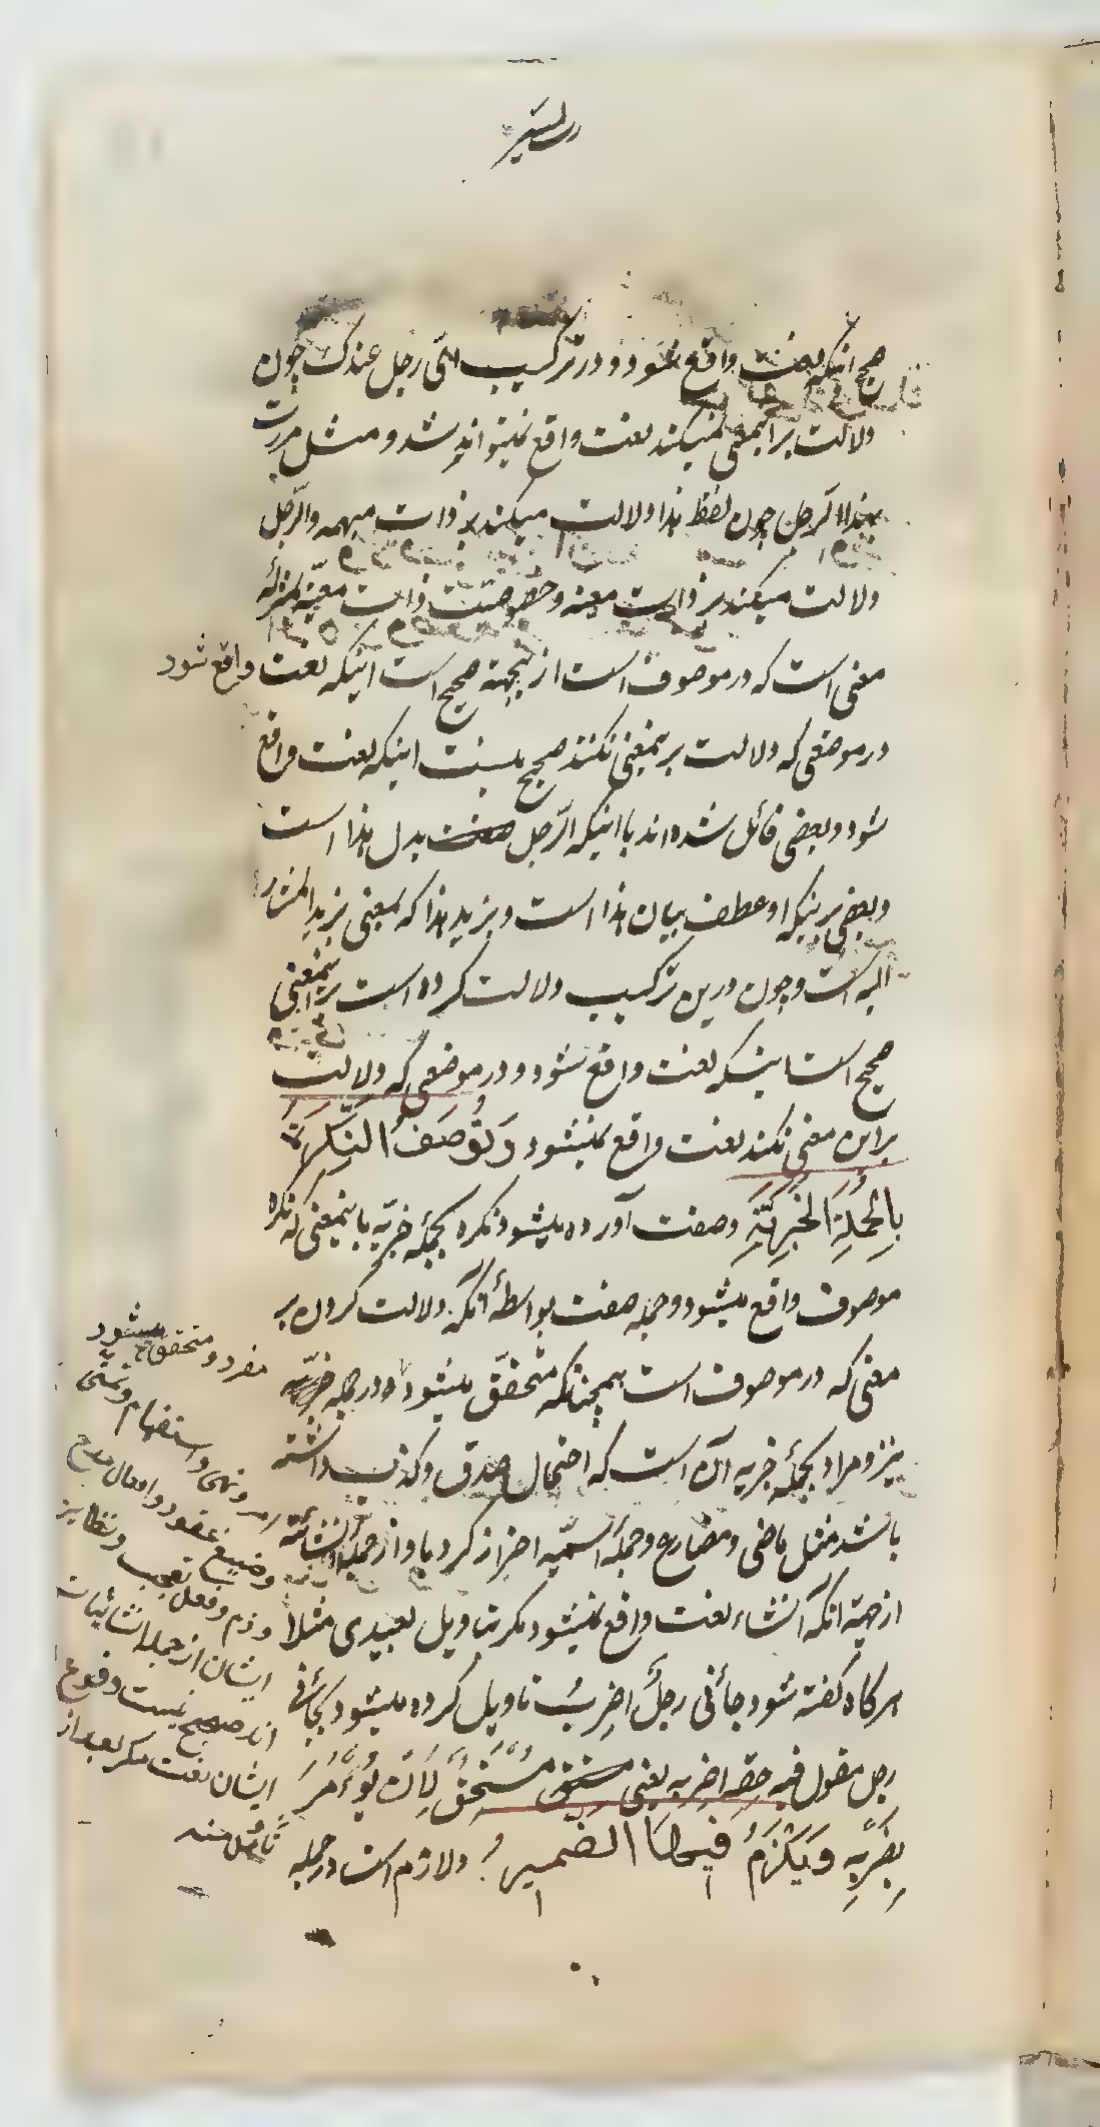 رب یسر
صحیح اینکه نعت واقع شود و در ترکیب ائی رجل عندک چون
ولالت براینمعنی نمیکند نعت واقع نمیتواند شد و مثل مررت
بهذا الرجل چون لفظ هذا ولالت میکند بر ذات مبهمه والرّجل
ولالت میکند بر ذات معینه و خصوصیّت ذات معیّنه بمنزلهٔ
معنی است که در موصوف است از ینجهة صحیح است اینکه نعت واقع شود
در موضعی که ولالت بر ینمعنی نکند صحیح نیست اینکه نعت واقع
شود و بعضی قائل شده اند با اینکه الرّجل بدل هذا است
و بعضی بر ینکه او عطف بیان هذا است و بزید هذا که بمعنی بزید المشار
الیه است و چون درین ترکیب ولالت کرده است بر اینمعنی
صحیح است اینکه نعت واقع شود و در موضعی که ولالت
براین معنی نکند نعت واقع نمیشود وَتُوصَفُ النَّکِرَةُ
بِالجُملَةِ الخَبَرِیَّةِ وصفت آورده میشود نکره بجملهٔ خبریّه باینمعنی که نکره
موصوف واقع میشود و جمله صفت بواسطهٔ آنکه ولالت کردن بر
معنی که در موصوف است همچنانکه متحقّق میشود در جمله خبریّه
نیز و مراد بجملهٔ خبریه آن است که احتمال صدق و کذب داشته
باشد مثل ماضی و مضارع و جملهٔ اسمیّه احتراز کرد باو از جمله انشائیّه
ازجهة آنکه انشاء نعت واقع نمیشود مکر بتاویل بعیدی مثلا
هرکاه کفته شود جائنی رجلٌ اضرِبهُ تاویل کرده میشود بجائنی
رجل مقول فی حقه اضربه یعنی مُستَحِقٌّ لِاَن یُؤمَرَ
بِضَربِهِ وَیَلزَمُ فیهَا الضمیرُ ولازم است در جمله
مفرد و متحقق میشود
امر و نهی و استفهام و تمنّی
و صیغ عقود و افعال مدح
و ذم و فعل تعجب و نظایر
ایشان از جمله انشائیات
اند صحیح نیست وقوع
ایشان نعت مکر بعد از
تأمّل منه